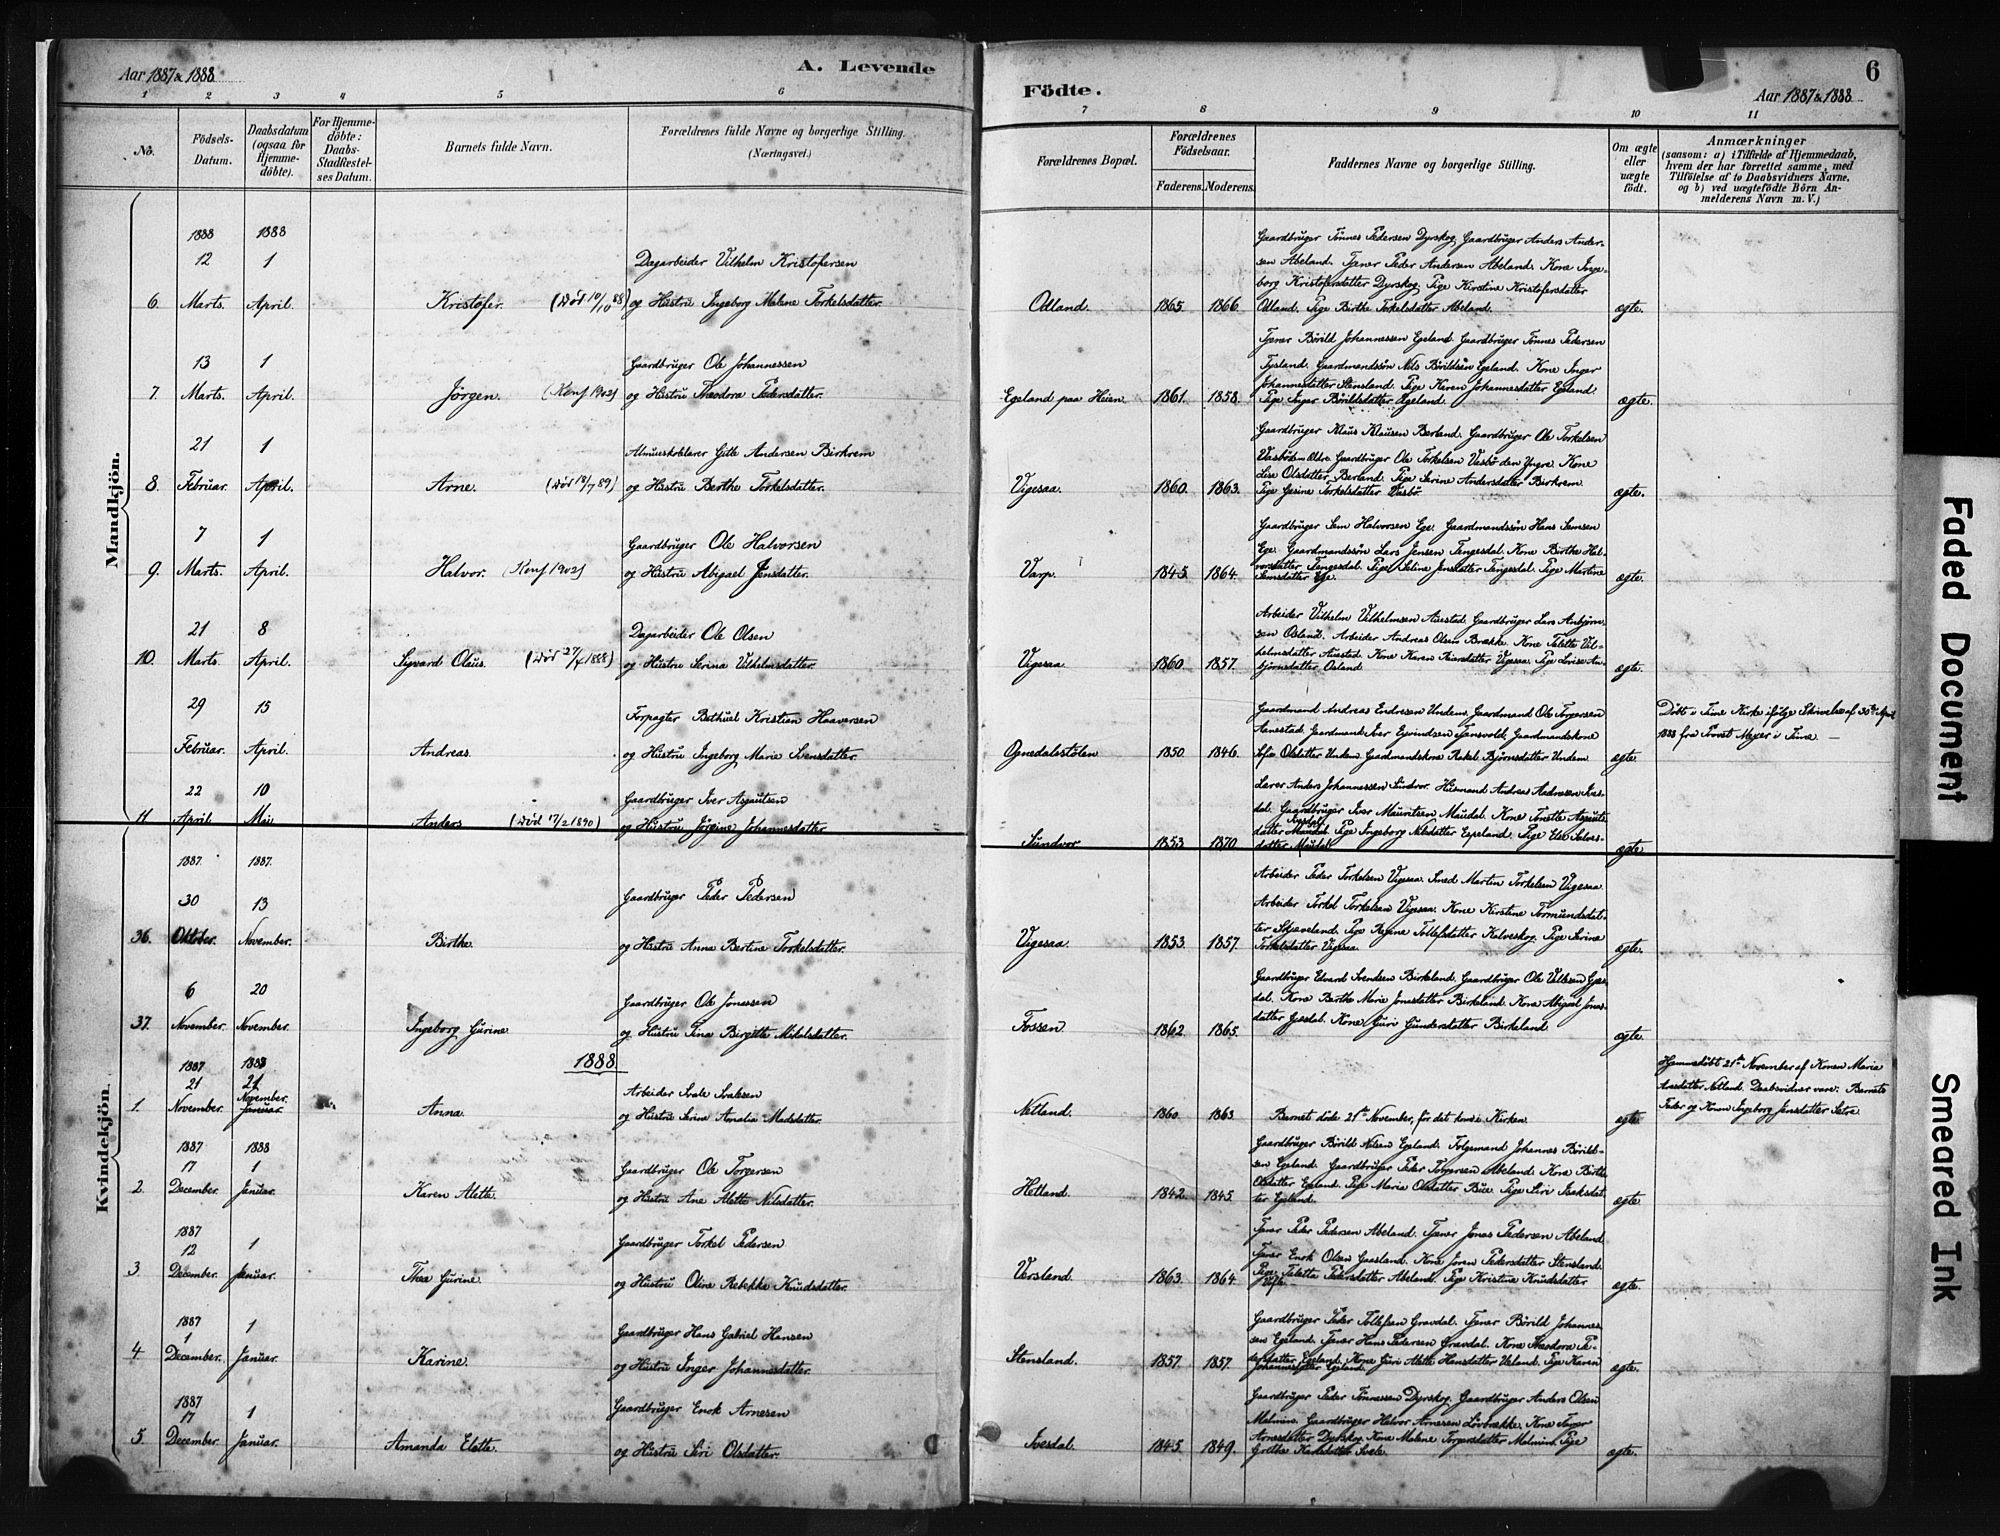 Aar 1887 & 1888
A. Levende
Födte.
Aar 1887 & 1888
6
1 2 3 4 5 6 7 8 9 10 11
No.
Födsels-Datum.
Daabsdatum (ogsaa for Hjemme-döbte).
For Hjemme-döbte: Daabs-Stadfæstel-ses Datum.
Barnets fulde Navn.
Forældrenes fulde Navne og borgerlige Stilling.
(Næringsvei.)
Forældrenes Bopæl.
Forældrenes Födselsaar.
Faderens. Moderens.
Faddernes Navne og borgerlige Stilling.
Om ægte eller uægte födt.
Anmærkninger
(saasom: a) i Tilfælde af Hjemmedaab,
hvem der har forrettet samme, med
Tilföielse af to Daabsvidners Navne,
og b) ved uægtefödte Börn An-
melderens Navn m. V.)
Mandkjön.
1888 1888
12 1 Dagarbeider Vilhelm Kristofersen
6. Marts. April. Kristofer. (Död 10/10 88) og Hustru Ingeborg Malene Torkelsdatter.
Odland. 1865. 1866.
Gaardbruger Tönnes Pedersen Dyrskog, Gaardbruger Anders Ander-
sen Abeland. Tjener Peder Andersen Abeland. Kone Inge-
borg Kristofersdatter Dyrskog. Pige Kirstine Kristofersdatter
Odland. Pige Birthe Torkelsdatter Abeland.
ægte.
13 1 Gaardbruger Ole Johannessen
7. Marts. April. Jörgen. (Konf 1902) og Hustru Theodora Pedersdatter.
Egeland paa Heien. 1861. 1858.
Tjener Börild Johannessen Egeland. Gaardbruger Tönnes Pedersen
Tysland. Gaardmandssön Nils Börildsen Egeland. Kone Inger
Johannesdatter Stensland. Pige Karen Johannesdatter Egeland.
Pige Inger Börildsdatter Egeland.
ægte.
21 1 Almueskolelærer Gitle Andersen Birkrem
8. Februar. April. Arne. (Död 18/7 89) og Hustru Berthe Torkelsdatter.
Vigesaa. 1860. 1863.
Gaardbruger Klaus Klausen Berland. Gaardbruger Ole Torkelsen
Vasbö den Ældre. Gaardbruger Ole Torkelsen Vasbö den Yngre. Kone
Lise Olsdatter Berland. Pige Serine Andersdatter Birkrem.
Pige Gesine Torkelsdatter Vasbö.
ægte.
7 1 Gaardbruger Ole Halvorsen
9. Marts. April. Halvor. (Konf 1902) og Hustru Abigael Jensdatter.
Varp. 1845. 1864.
Gaardbruger Sem Halvorsen Ege. Gaardmandssön Hans Semsen
Ege. Gaardmandssön Lars Jensen Tengesdal. Kone Birthe Hal-
vorsdatter Tengesdal. Pige Seline Jensdatter Tengesdal. Pige Martine
Semsdatter Ege.
ægte.
21 8 Dagarbeider Ole Olsen
10. Marts. April. Sigvard Olaus. (Död 27/4 1888) og Hustru Serina Vilhelmsdatter.
Vigesaa 1860. 1857.
Arbeider Vilhelm Vilhelmsen Auestad. Gaardbruger Lars Anbjörn-
sen Osland. Arbeider Andreas Olsen Brække. Kone Talette Vil-
helmsdatter Auestad. Kone Karen Peiersdatter Vigesaa. Pige Lovise An-
björnsdatter Osland
ægte.
29 15 Forpagter Bethuel Kristian Haaversen
Februar. April. Andreas. og Hustru Ingeborg Marie Svensdatter.
Ognedalsstölen 1850. 1846.
Gaardmand Andreas Endresen Undem. Gaardmand Ole Torgersen
Aanestad. Gaardmand Iver Eyvindsen Tansvold. Gaardmandskone
Sofie Olsdatter Undem Gaardmandskone Rakel Björnsdatter Undem
ægte.
Döbt i Time Kirke ifölge Skrivelse af 30te April
1888 fra Provst Meyer i Time. —
22 10 Gaardbruger Iver Asgautsen
11 April. Mai. Anders (Död 17/2 1890) og Hustru Jörgine Johannesdatter
Sundvor 1853 1870
Lærer Anders Johannessen Sundvor. Husmand Andreas Andresen Ives-
dal. Gaardbruger Iver Mauritsen Maudal. Kone Tonette Asgauts-
datter Maudal. Pige Ingeborg Nilsdatter Espeland. Pige Else Salves-
datter Maudal
ægte.
Kvindekjön.
1887 1887.
30 13 Gaardbruger Peder Pedersen
36. Oktober. November. Birthe. og Hustru Anna Bertine Torkelsdatter.
Vigesaa. 1853 1857.
Arbeider Peder Torkelsen Vigesaa. Smed Martin Torkelsen Vigesaa.
Arbeider Torkel Torkelsen Vigesaa. Kone Kirstine Tormundsdat-
ter Skjæveland. Pige Regine Tollefsdatter Kalveskog. Pige Serine
Torkelsdatter Vigesaa.
ægte.
6 20 Gaardbruger Ole Jonassen
37. November. November. Ingeborg Gurine og Hustru Tina Birgitte Mikalsdatter.
Fossen. 1862 1865.
Gaardbruger Edvard Svendsen Birkeland. Gaardbruger Ole Villesen Gjes-
dal. Kone Berthe Marie Jonasdatter Birkeland. Kone Abigael Jonas-
datter Gjesdal. Kone Guri Gundersdatter Birkeland.
ægte.
1888
1887 1888
21 21 Arbeider Svale Svalesen
1. November. November. Januar. Anna. og Hustru Serine Amalia Madsdatter.
Netland. 1860. 1863
Barnet döde 21de November, för det kom i Kirken.
ægte.
Hjemmedöbt 21de November af Konen Maria
Aasdatter Netland. Daabsvidner vare: Barnets
Fader og Konen Ingeborg Jensdatter Sætre.
1887 1888
17 1 Gaardbruger Ole Torgersen
2. December. Januar. Karen Alette. og Hustru Ane Alette Nilsdatter.
Hetland. 1842. 1845.
Gaardbruger Börild Nilsen Egeland. Folgemand Johannes Börilds-
sen Egeland. Gaardbruger Peder Torgersen Abeland. Kone Birthe
Olsdatter Egeland. Pige Maria Olsdatter Bue. Pige Siri Isaksdat-
ter Egeland.
ægte.
1887
12 1 Gaardbruger Torkel Pedersen
3 December. Januar. Thea Gurine. og Hustru Oline Rebekka Knudsdatter.
Versland. 1863. 1864
Tjener Peder Pedersen Abeland. Tjener Jonas Pedersen Abeland
Tjener Enok Olsen Gaasland. Kone Joren Pedersdatter Stensland.
Pige Taletta Pedersdatter Abeland. Pige Kristine Knudsdatter
ægte.
1887
1 1 Gaardbruger Hans Gabriel Hansen
4 December. Januar. Karine. og Hustru Inger Johannesdatter.
Stensland. 1857. 1857.
Gaardbruger Peder Tollefsen Gravdal. Tjener Börild Johannes-
sen Egeland. Tjener Hans Pedersen Gravdal. Kone Theodora Pe-
dersdatter Egeland. Kone Guri Alette Hansdatter Veland. Pige Karen
Johannesdatter Egeland.
ægte.
1887
17 1 Gaardbruger Enok Arnesen
5. December. Januar. Amanda Elette. og Hustru Siri Olsdatter.
Ivesdal. 1845. 1849.
Gaardbruger Peder Tönnessen Dyrskog. Gaardbruger Anders Olsen
Malmin. Gaardbruger Halvor Arnesen Lövbrække. Kone Tonette
Arnesdatter Dyrskog. Kone Malene Torgersdatter Malmin. Pige
Grethe Karlsdatter Svele.
ægte.
Faded Document
Smeared Ink